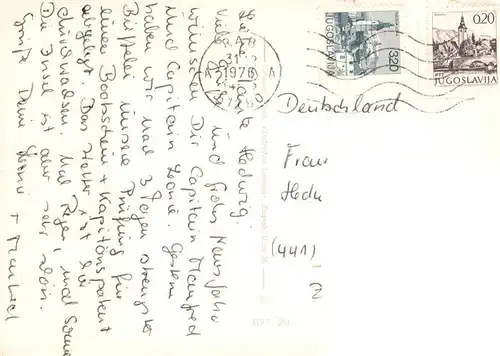 Liebe Tante Hedwig!
Viele Grüße und frohes Neues Jahr
wünschen Dir Capitain Manfred
und Capitain Leonie. Gestern
haben wir nach 3 Tagen strengster
Büffelei unsere Prüfung für
einen Bootsschein + Kapitänspatent
abgelegt. Das Wetter ist hier
durchwachsen. Mal Regen, mal Sonne
Die Insel ist aber sehr schön.
Grüße Deine + Manfred
JUGOSLAVIJA
3.20
0.20
PTT JUGOSLAVIJA
31
1976
A A
Deutschland
Frau
Hedw
(441)